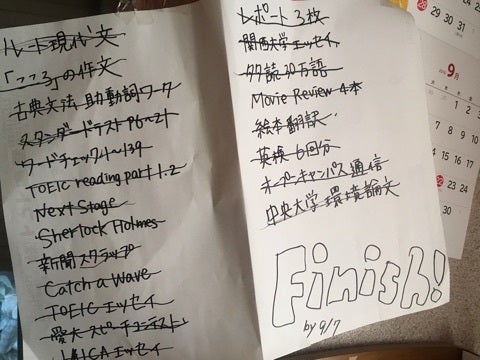 ルート現代文
「こころ」の作文
古典文法 助動詞ワーク
スタンダードテスト P6~21
ワードチェック1~139
TOEIC reading part 1.2
Next Stage
Sherlock Holmes
新聞スクラップ
Catch a Wave
TOEIC エッセイ
愛大 スピーチコンテスト
JAICA エッセイ
レポート 3枚
関西大学エッセイ
多読 30万語
Movie Review 4本
絵本翻訳
英検 6回分
オープンキャンパス通信
中央大学 環境論文
Finish!
by 9/7
28 29 30 31
9月
1 2
8 9
15
22 23
29 30